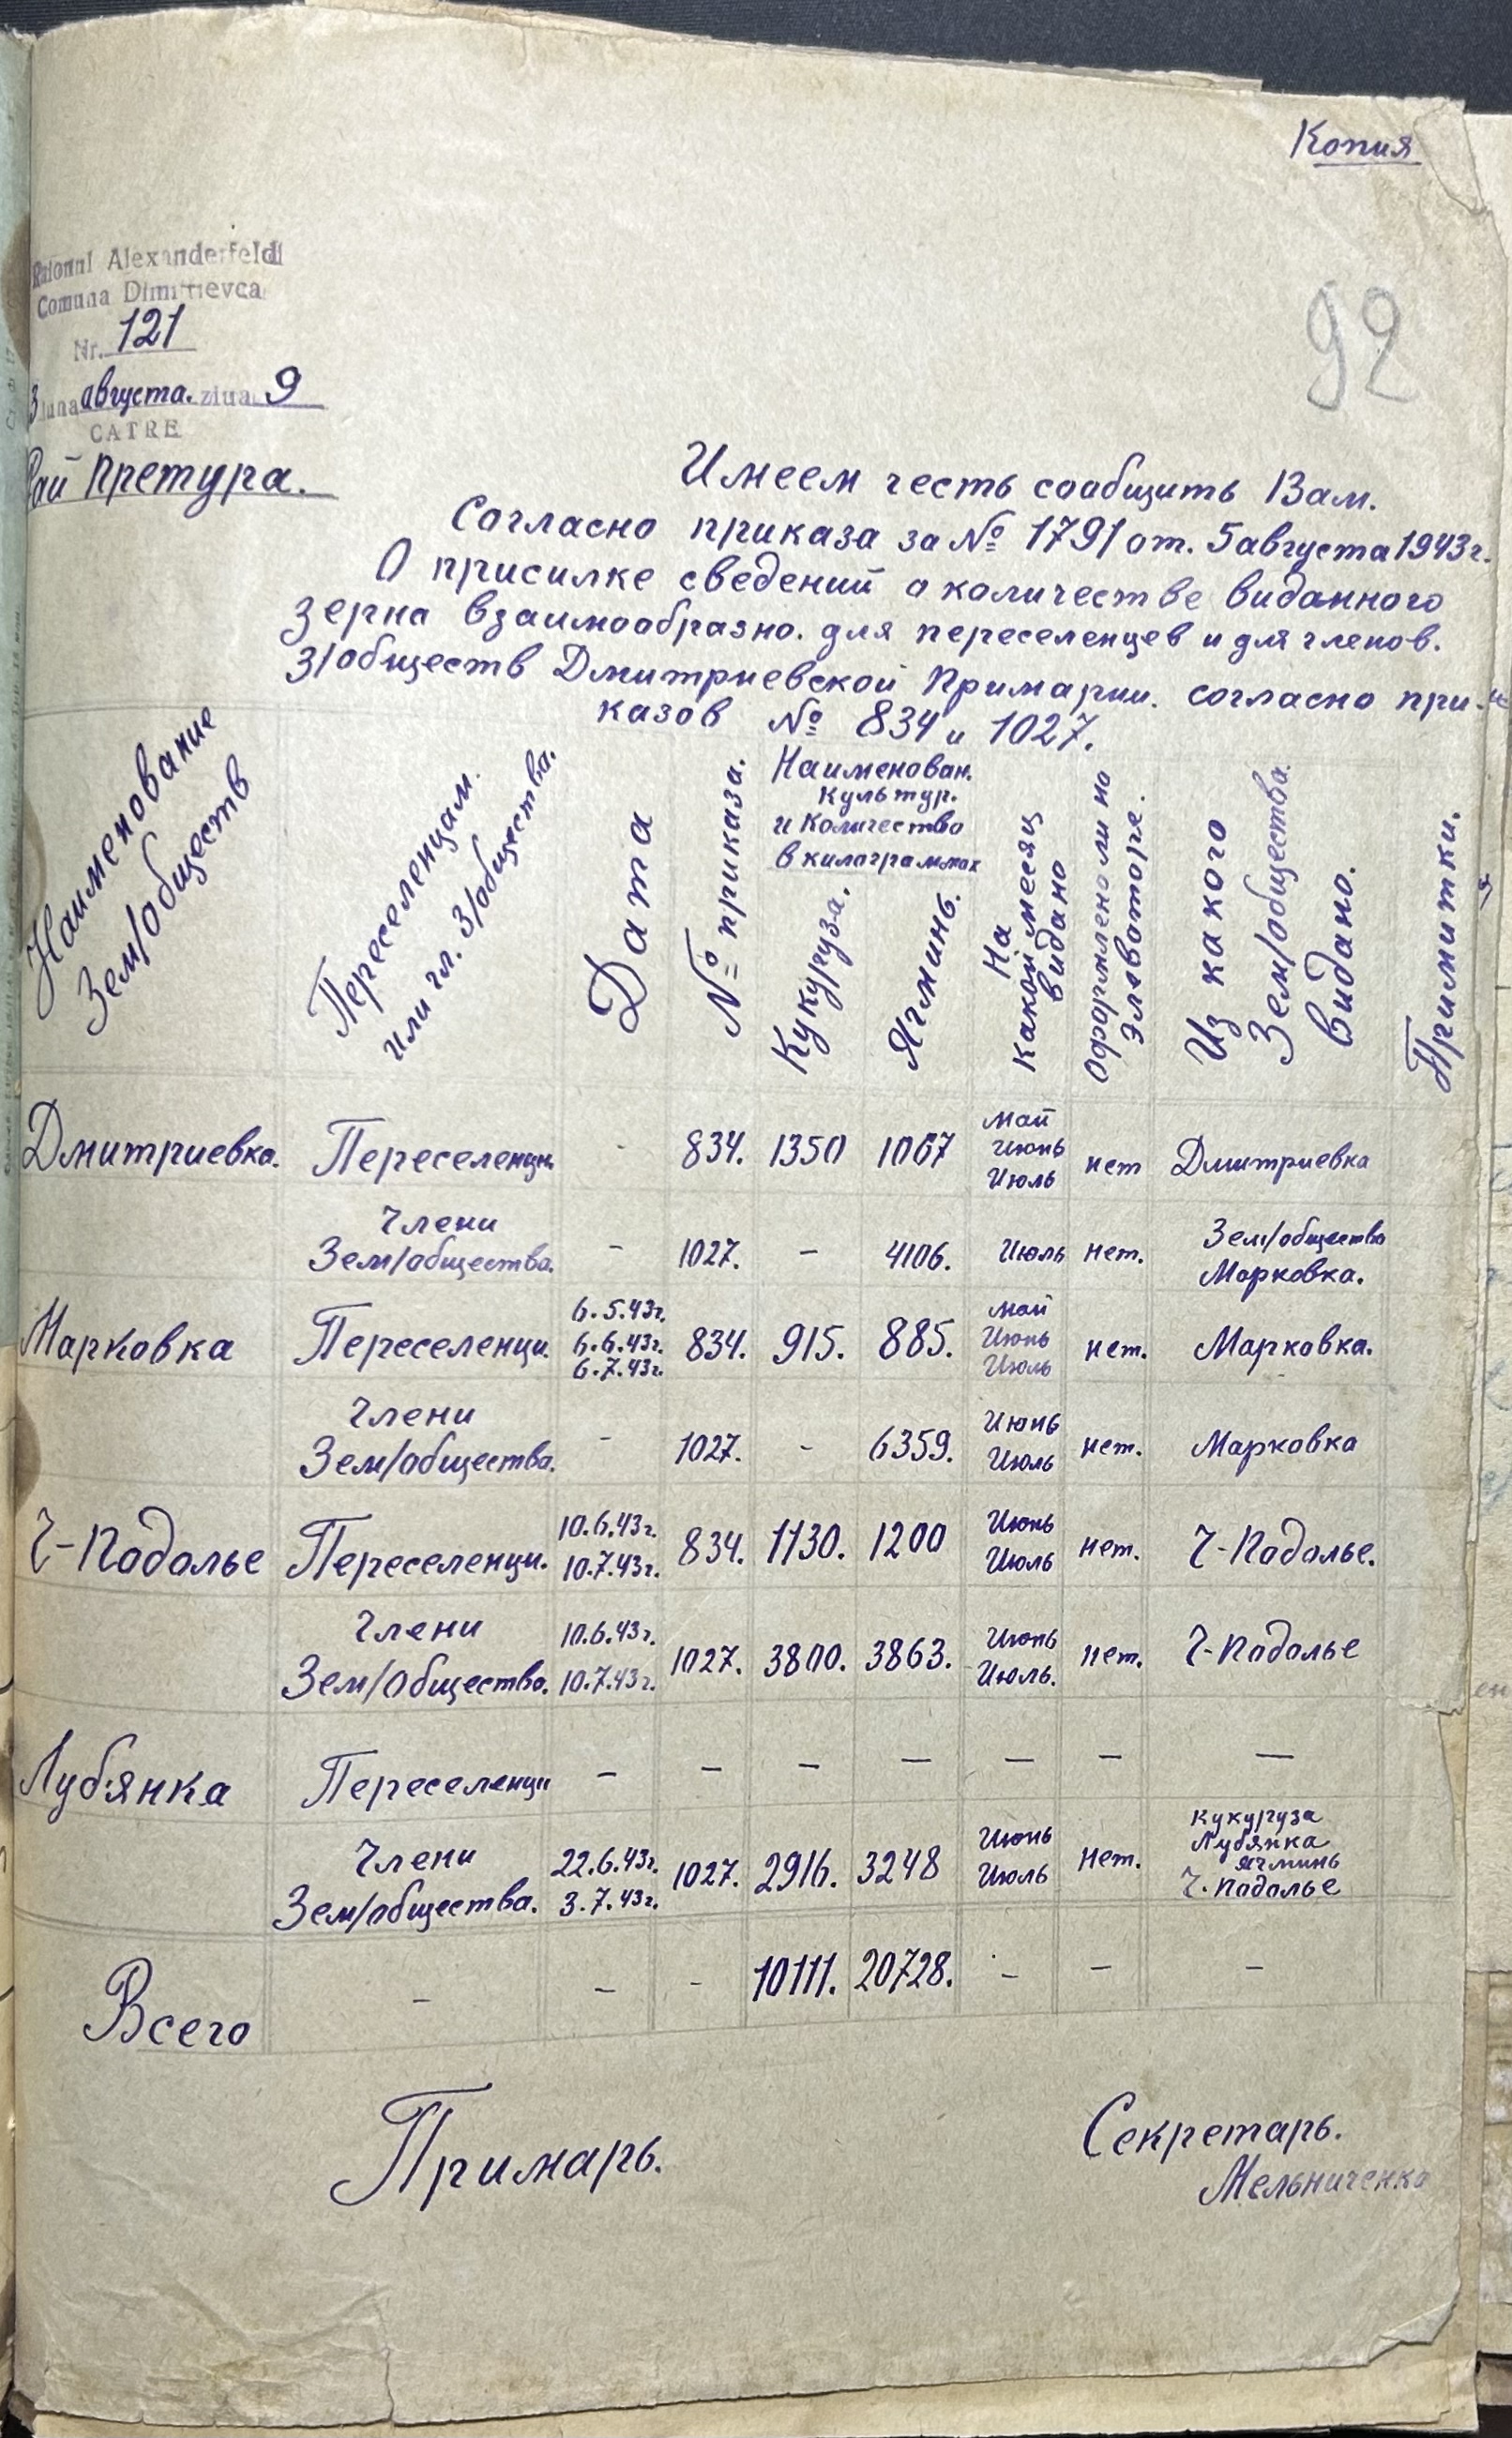 Копия
Raionul Alexanderfeld
Comuna Dimitrievca
Nr. 121
3 luna августа. ziua 9
CATRE
Рай Претура.
92
Имеем честь сообщить Вам.
Согласно приказа за № 1791 от. 5 августа 1943 г.
О присилке сведений о количестве виданного
зерна взаимообразно. для переселенцев и для членов.
з/обществ Дмитриевской Примарии. согласно при-
казов № 834 и 1027.
Наименование Зем/обществ | Переселенцам. или чл. З/общества. | Дата | № приказа. | Наименован. культур. и количество в килограммах | Кукуруза. | Ячминь. | На какой месяц видано | Оформлено ли на Элеваторе. | Из какого Зем/общества. видано. | Примитки.
Дмитриевка. | Переселенци. | - | 834. | 1350 | 1067 | Май Июнь Июль | нет | Дмитриевка
Члени Зем/общества. | - | 1027. | - | 4106. | Июль | нет. | Зем/общество Марковка.
Марковка | Переселенци. | 6.5.43г. 6.6.43г. 6.7.43г. | 834. | 915. | 885. | Май Июнь Июль | нет. | Марковка.
Члени Зем/общества. | - | 1027. | - | 6359. | Июнь Июль | нет. | Марковка
Ч-Подолье | Переселенци. | 10.6.43г. 10.7.43г. | 834. | 1130. | 1200 | Июнь Июль | нет. | Ч-Подолье.
Члени Зем/общества. | 10.6.43г. 10.7.43г. | 1027. | 3800. | 3863. | Июнь Июль. | нет. | Ч-Подолье
Лубянка | Переселенци | - | - | - | - | - | - | -
Члени Зем/общества. | 22.6.43г. 3.7.43г. | 1027. | 2916. | 3248 | Июнь Июль | нет. | Кукуруза Лубянка ячминь Ч.Подолье
Всего | - | - | - | 10111. | 20728. | - | - | -
Примарь.
Секретарь.
Мельниченко